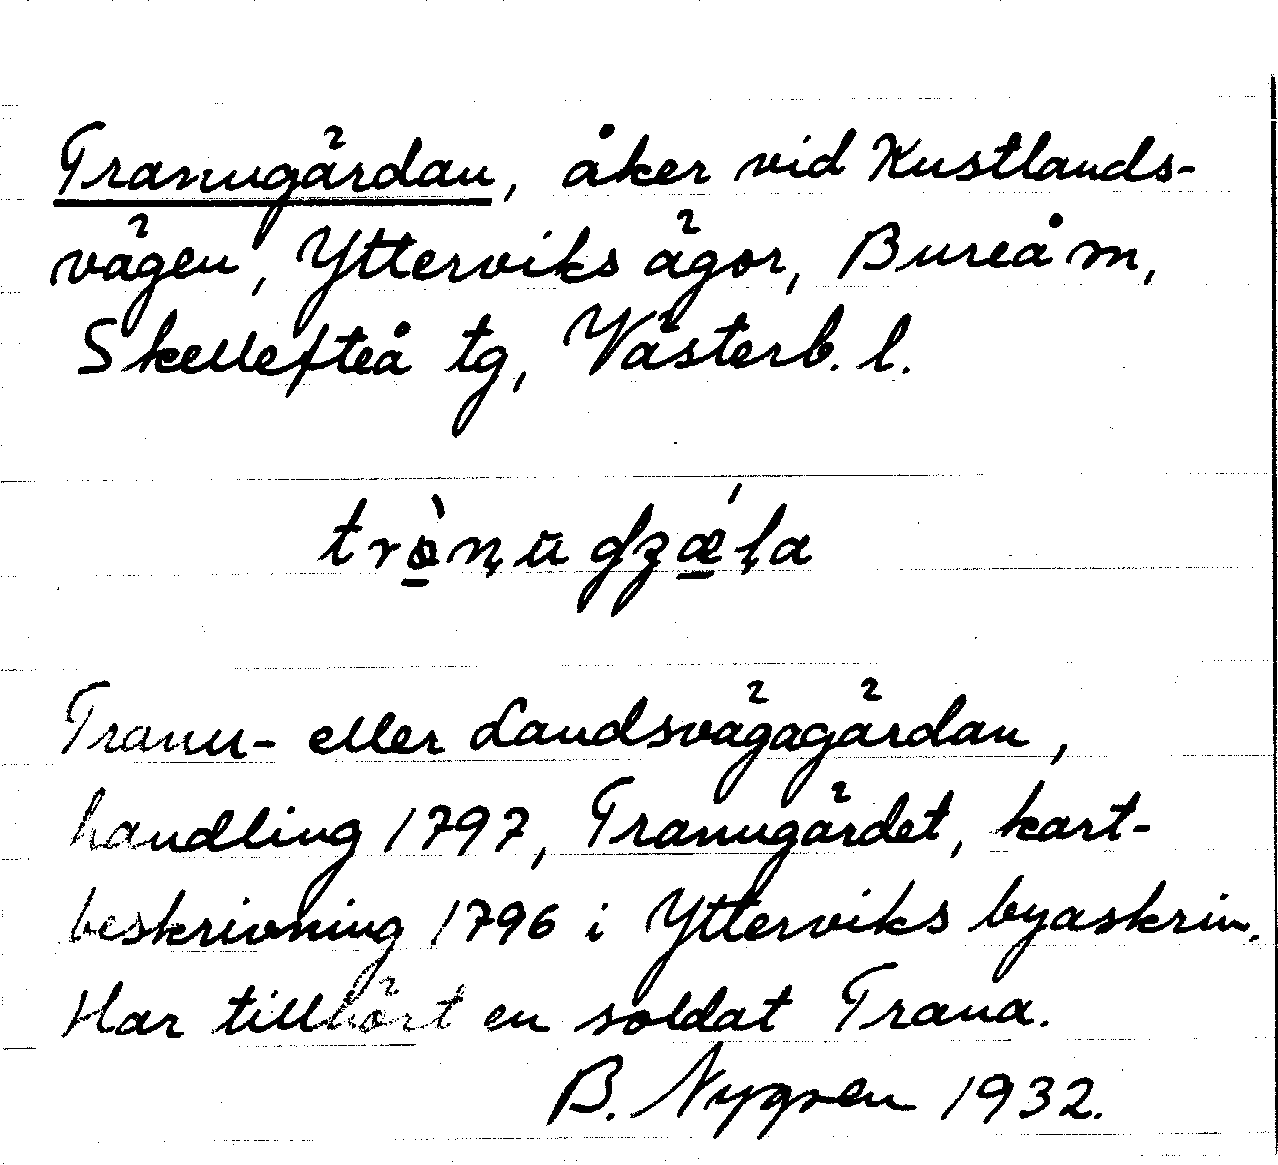 Tranugärdan, åker vid Kustlands-
vägen, Ytterviks ägor, Bureå m,
Skellefteå tg, Västerb. l.
tròṇŭgʒǽḷa
Tranu- eller Landsvägagärdan,
handling 1797, Tranugärdet, kart-
beskrivning 1796 i Ytterviks byaskrin.
Har tillhört en soldat Trana.
B. Nygren 1932.